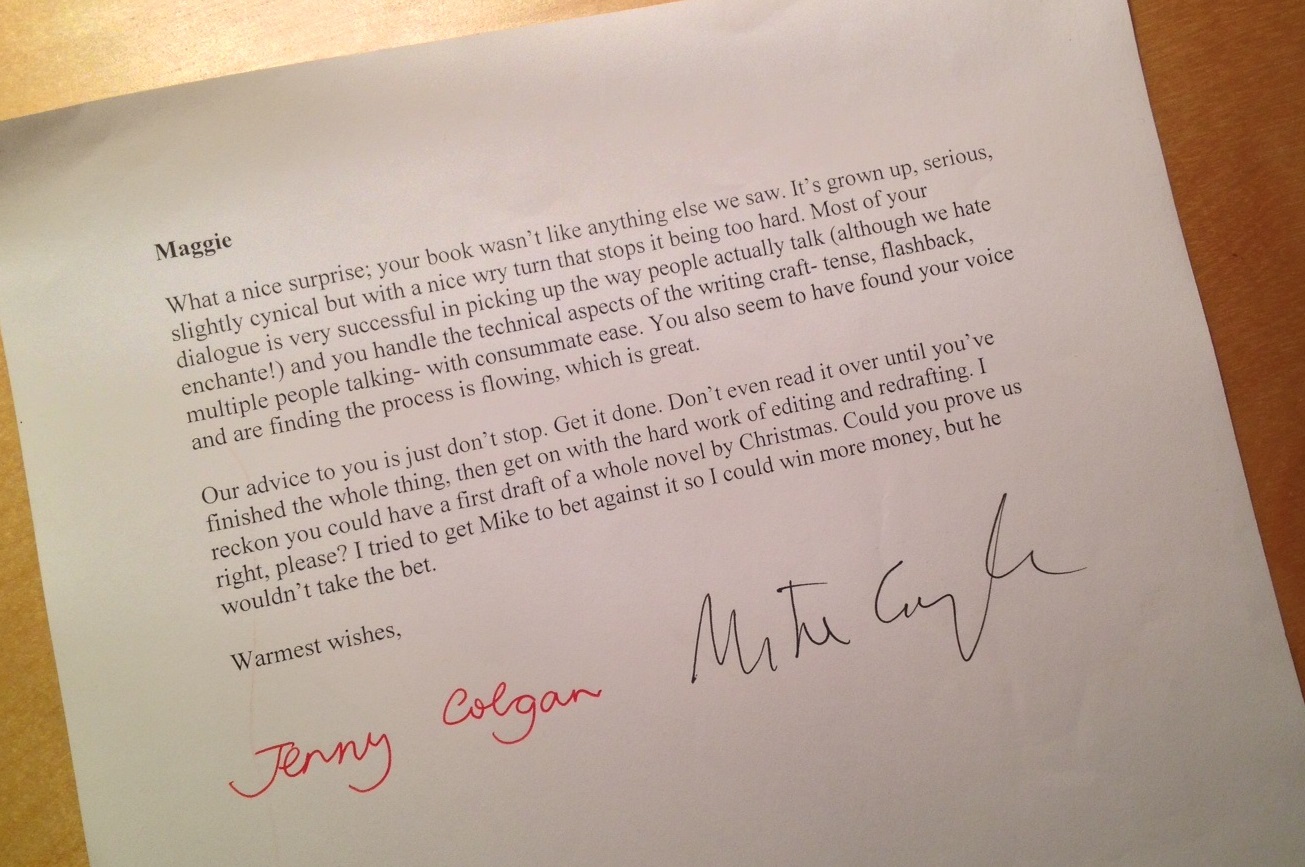 Maggie
What a nice surprise; your book wasn't like anything else we saw. It's grown up, serious,
slightly cynical but with a nice wry turn that stops it being too hard. Most of your
dialogue is very successful in picking up the way people actually talk (although we hate
enchante!) and you handle the technical aspects of the writing craft- tense, flashback,
multiple people talking- with consummate ease. You also seem to have found your voice
and are finding the process is flowing, which is great.
Our advice to you is just don't stop. Get it done. Don't even read it over until you've
finished the whole thing, then get on with the hard work of editing and redrafting. I
reckon you could have a first draft of a whole novel by Christmas. Could you prove us
right, please? I tried to get Mike to bet against it so I could win more money, but he
wouldn't take the bet.
Warmest wishes,
Jenny Colgan
Mike Gayle